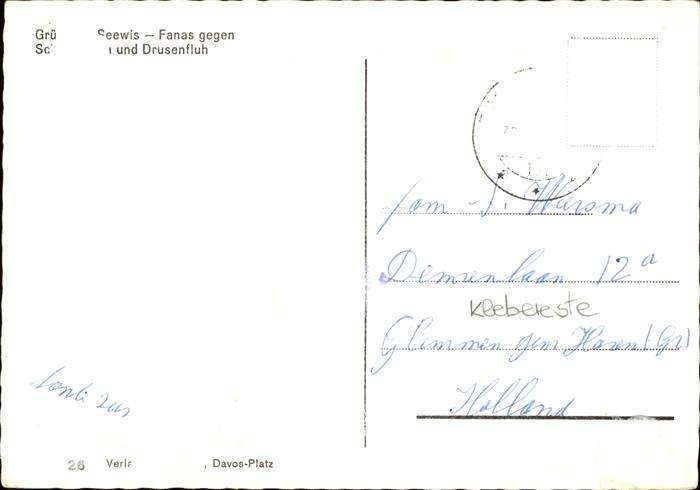 Grü Seewis – Fanas gegen
Sc und Drusenfluh
Fam Wiersma
Dimenlaan 12a
Klebereste
Glimmen gem Haren (Gr)
Holland
26 Verlr , Davos-Platz